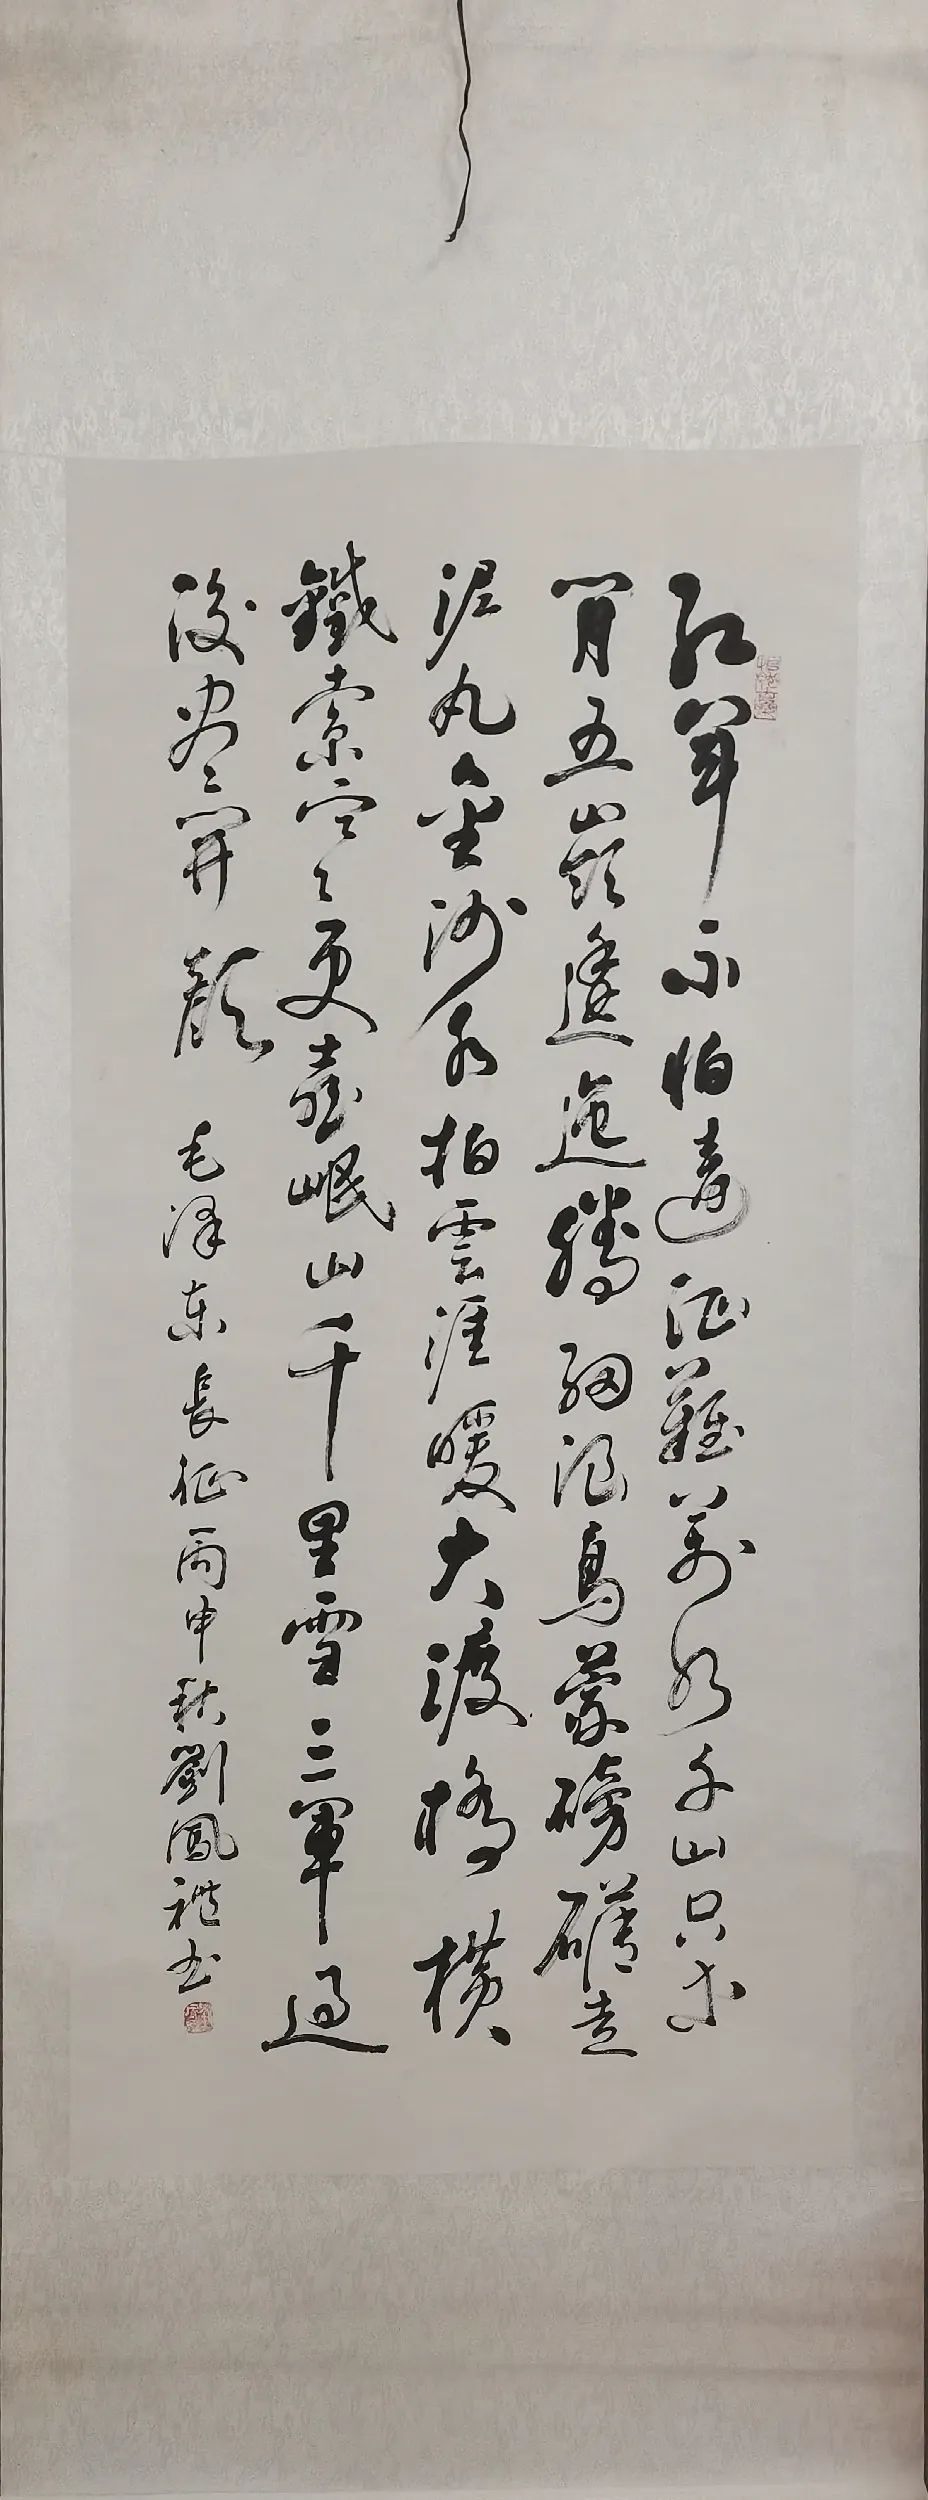 紅軍不怕遠征難萬水千山只等
閒五嶺逶迤騰細浪烏蒙磅礴走
泥丸金沙水拍雲涯暖大渡橋橫
鐵索寒更喜岷山千里雪三軍過
後盡開顏 毛澤东長征丙申秋劉鳳禮书